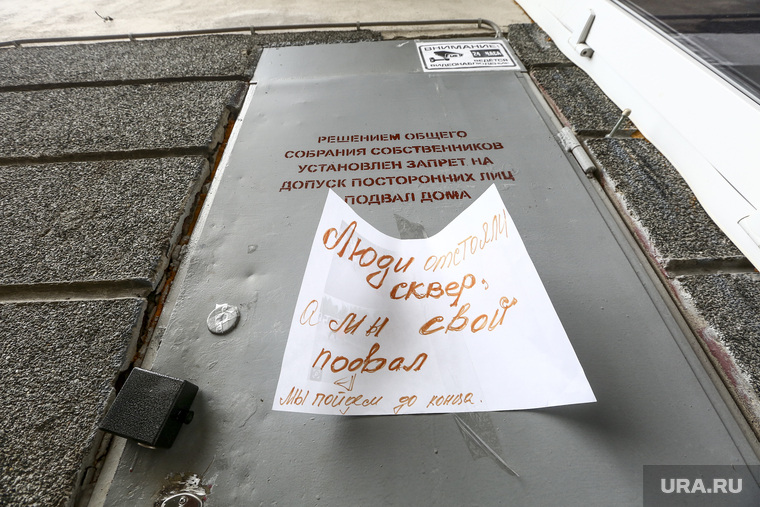 ВНИМАНИЕ
24 ЧАСА
ВЕДЁТСЯ
ВИДЕОНАБЛЮДЕНИЕ
РЕШЕНИЕМ ОБЩЕГО
СОБРАНИЯ СОБСТВЕННИКОВ
УСТАНОВЛЕН ЗАПРЕТ НА
ДОПУСК ПОСТОРОННИХ ЛИЦ
ПОДВАЛ ДОМА
Люди отстояли
сквер,
а мы свой
подвал
Мы пойдем до конца.
URA.RU